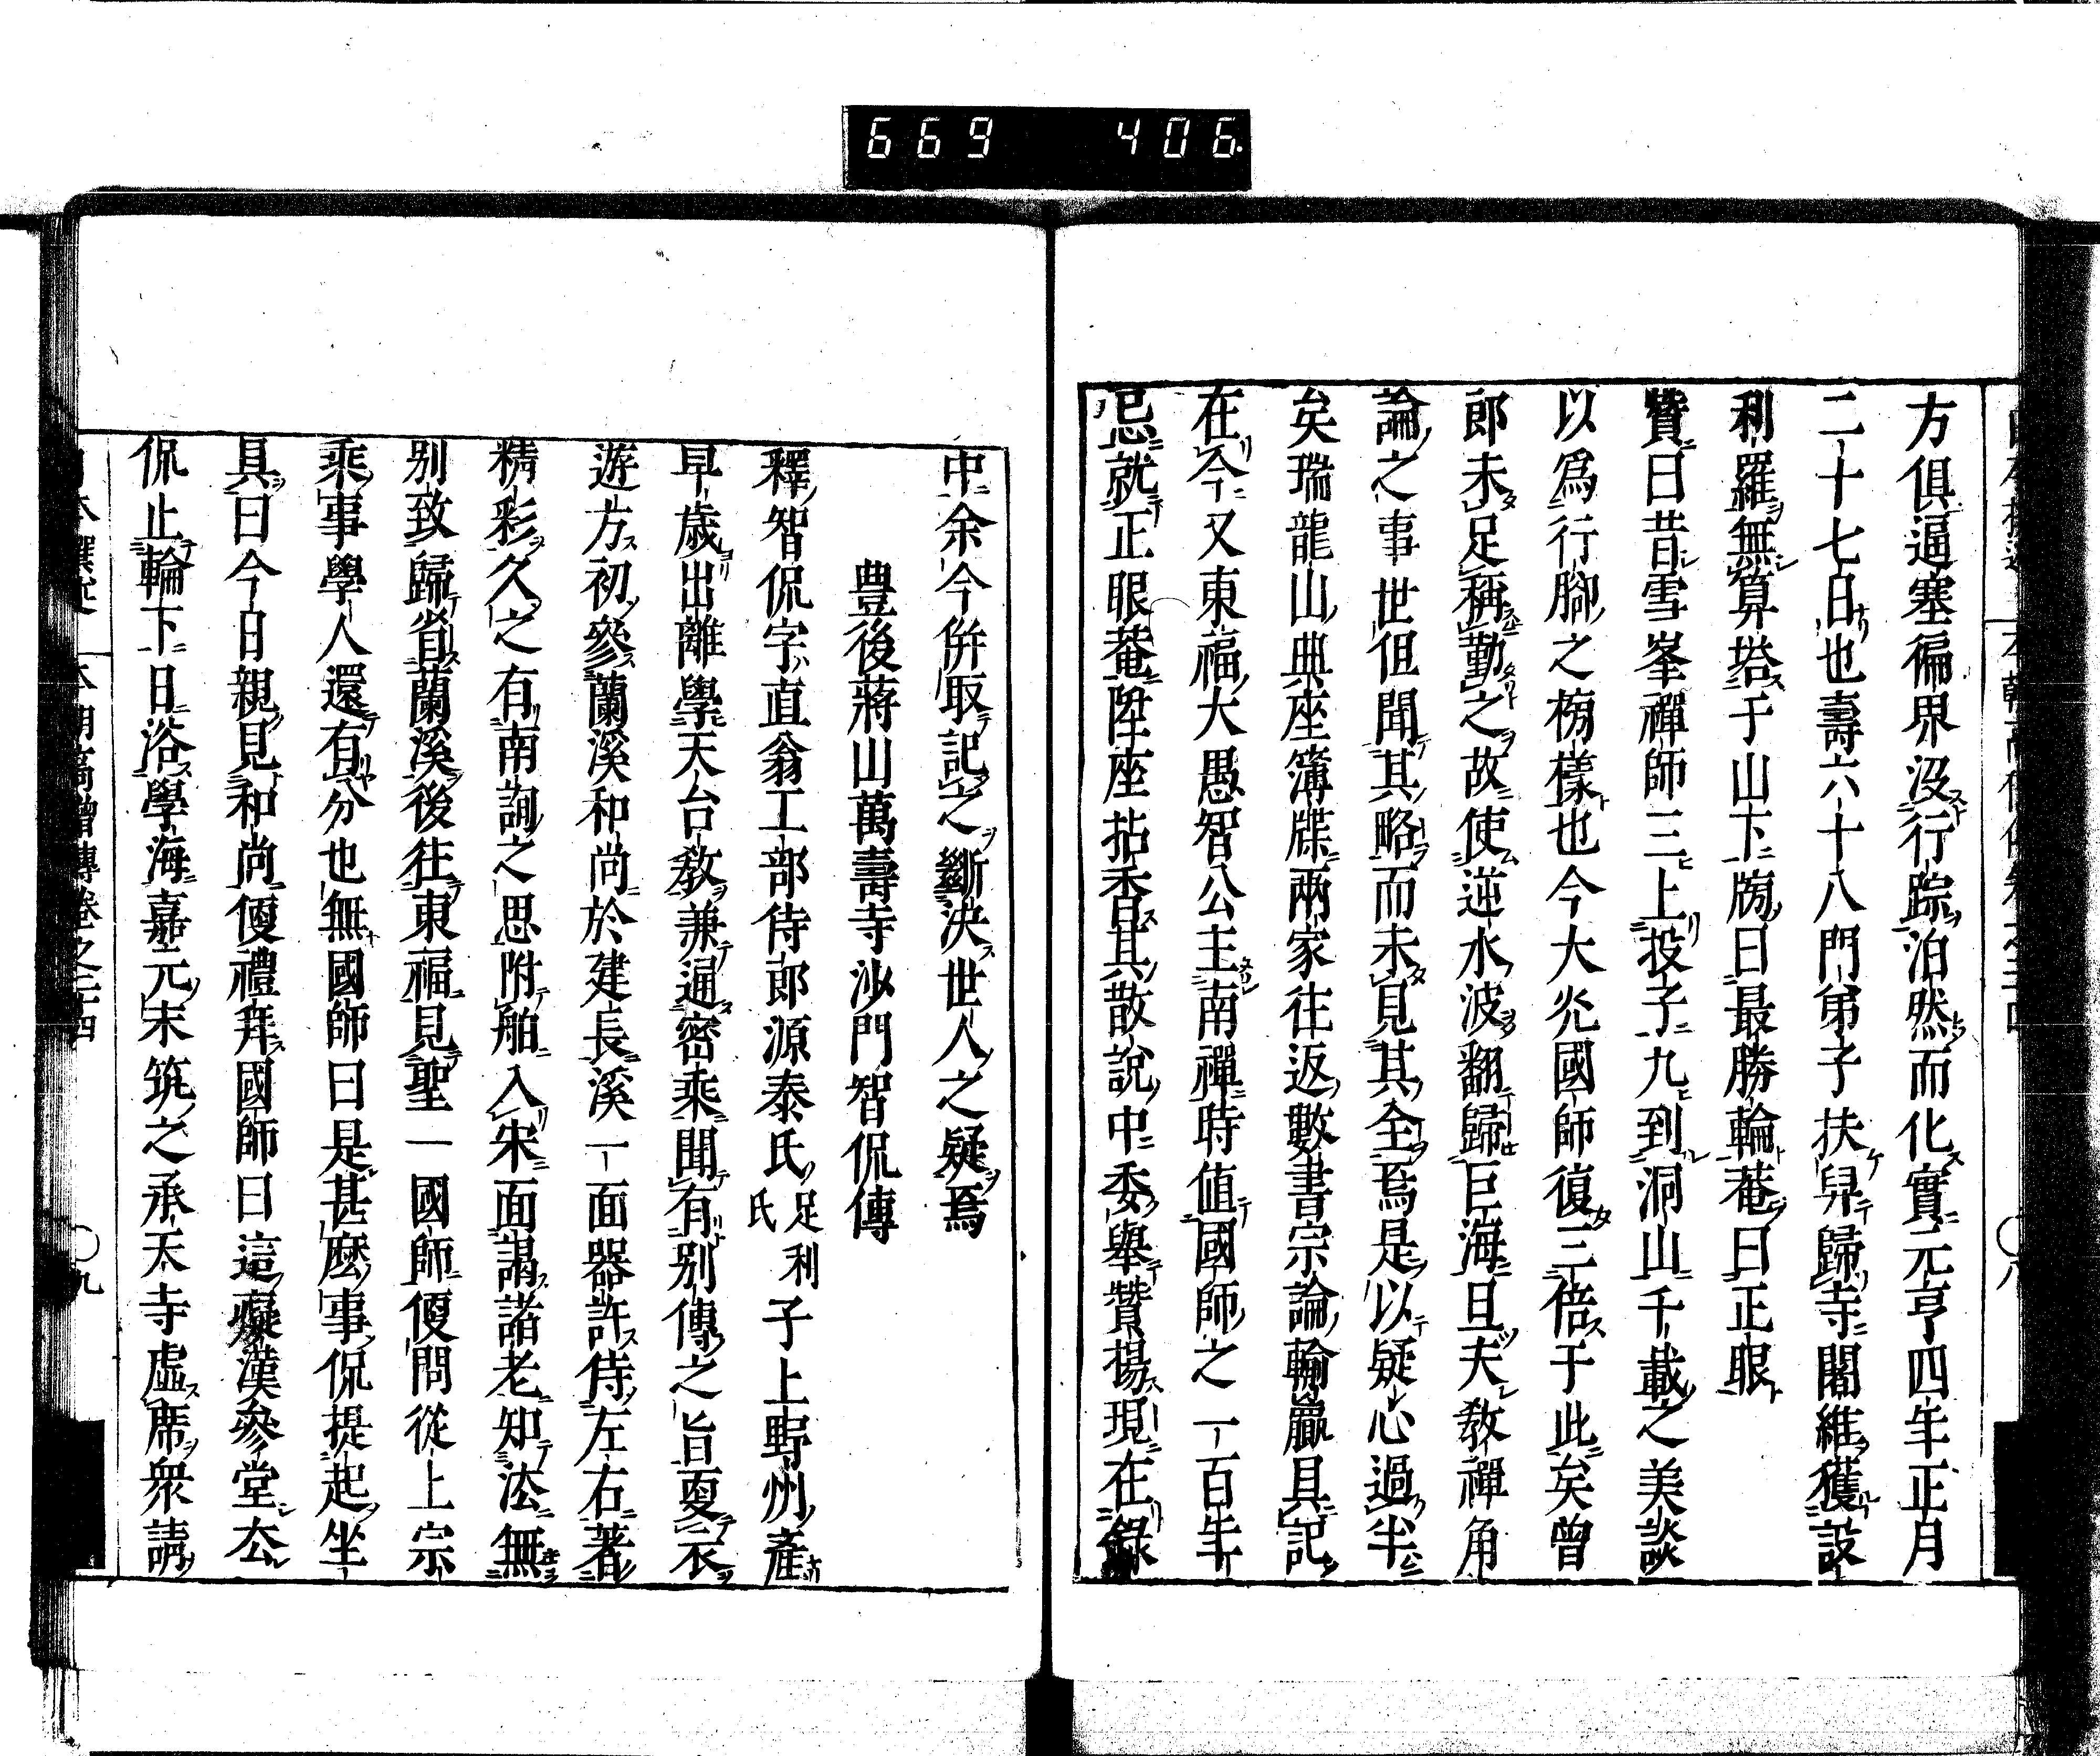 669 406
方俱逼塞徧界沒行踪泊然而化實元亨四年正月
二十七日也壽六十八門弟子扶舁歸寺闍維獲設
利羅無算塔于山下牓曰最勝輪菴曰正眼
贊曰昔雪峯禪師三上投子九到洞山千載之美談
以爲行脚之榜樣也今大光國師復三倍于此矣曾
郎未足稱勤之故使逆水波翻歸巨海且夫教禪角
論之事世但聞其略而未見其全焉是以疑心過半
矣瑞龍山典座簿牒兩家往返數書宗論輸贏具記
在今又東福大愚智公主南禪時値國師之一百年
忌就正眼菴陞座拈香其散說中委舉贊揚現在錄
中余今併取記之斷決世人之疑焉
豊後蔣山萬壽寺沙門智侃傳
釋智侃字直翁工部侍郎源泰氏足利氏子上野州產
早歲出離學天台教兼通密乘聞有別傳之旨更衣
遊方初參蘭溪和尚於建長溪一面器許侍左右著
精彩久之有南詢之思附舶入宋面謁諸老知法無
別致歸省蘭溪後往東福見聖一國師便問從上宗
乘事學人還有分也無國師曰是甚麽事侃提起坐
具曰今日親見和尚便禮拜國師曰這癡漢參堂去
侃止輪下日浴學海嘉元末筑之承天寺虛席衆請
本朝高僧傳卷之二十四 〇九